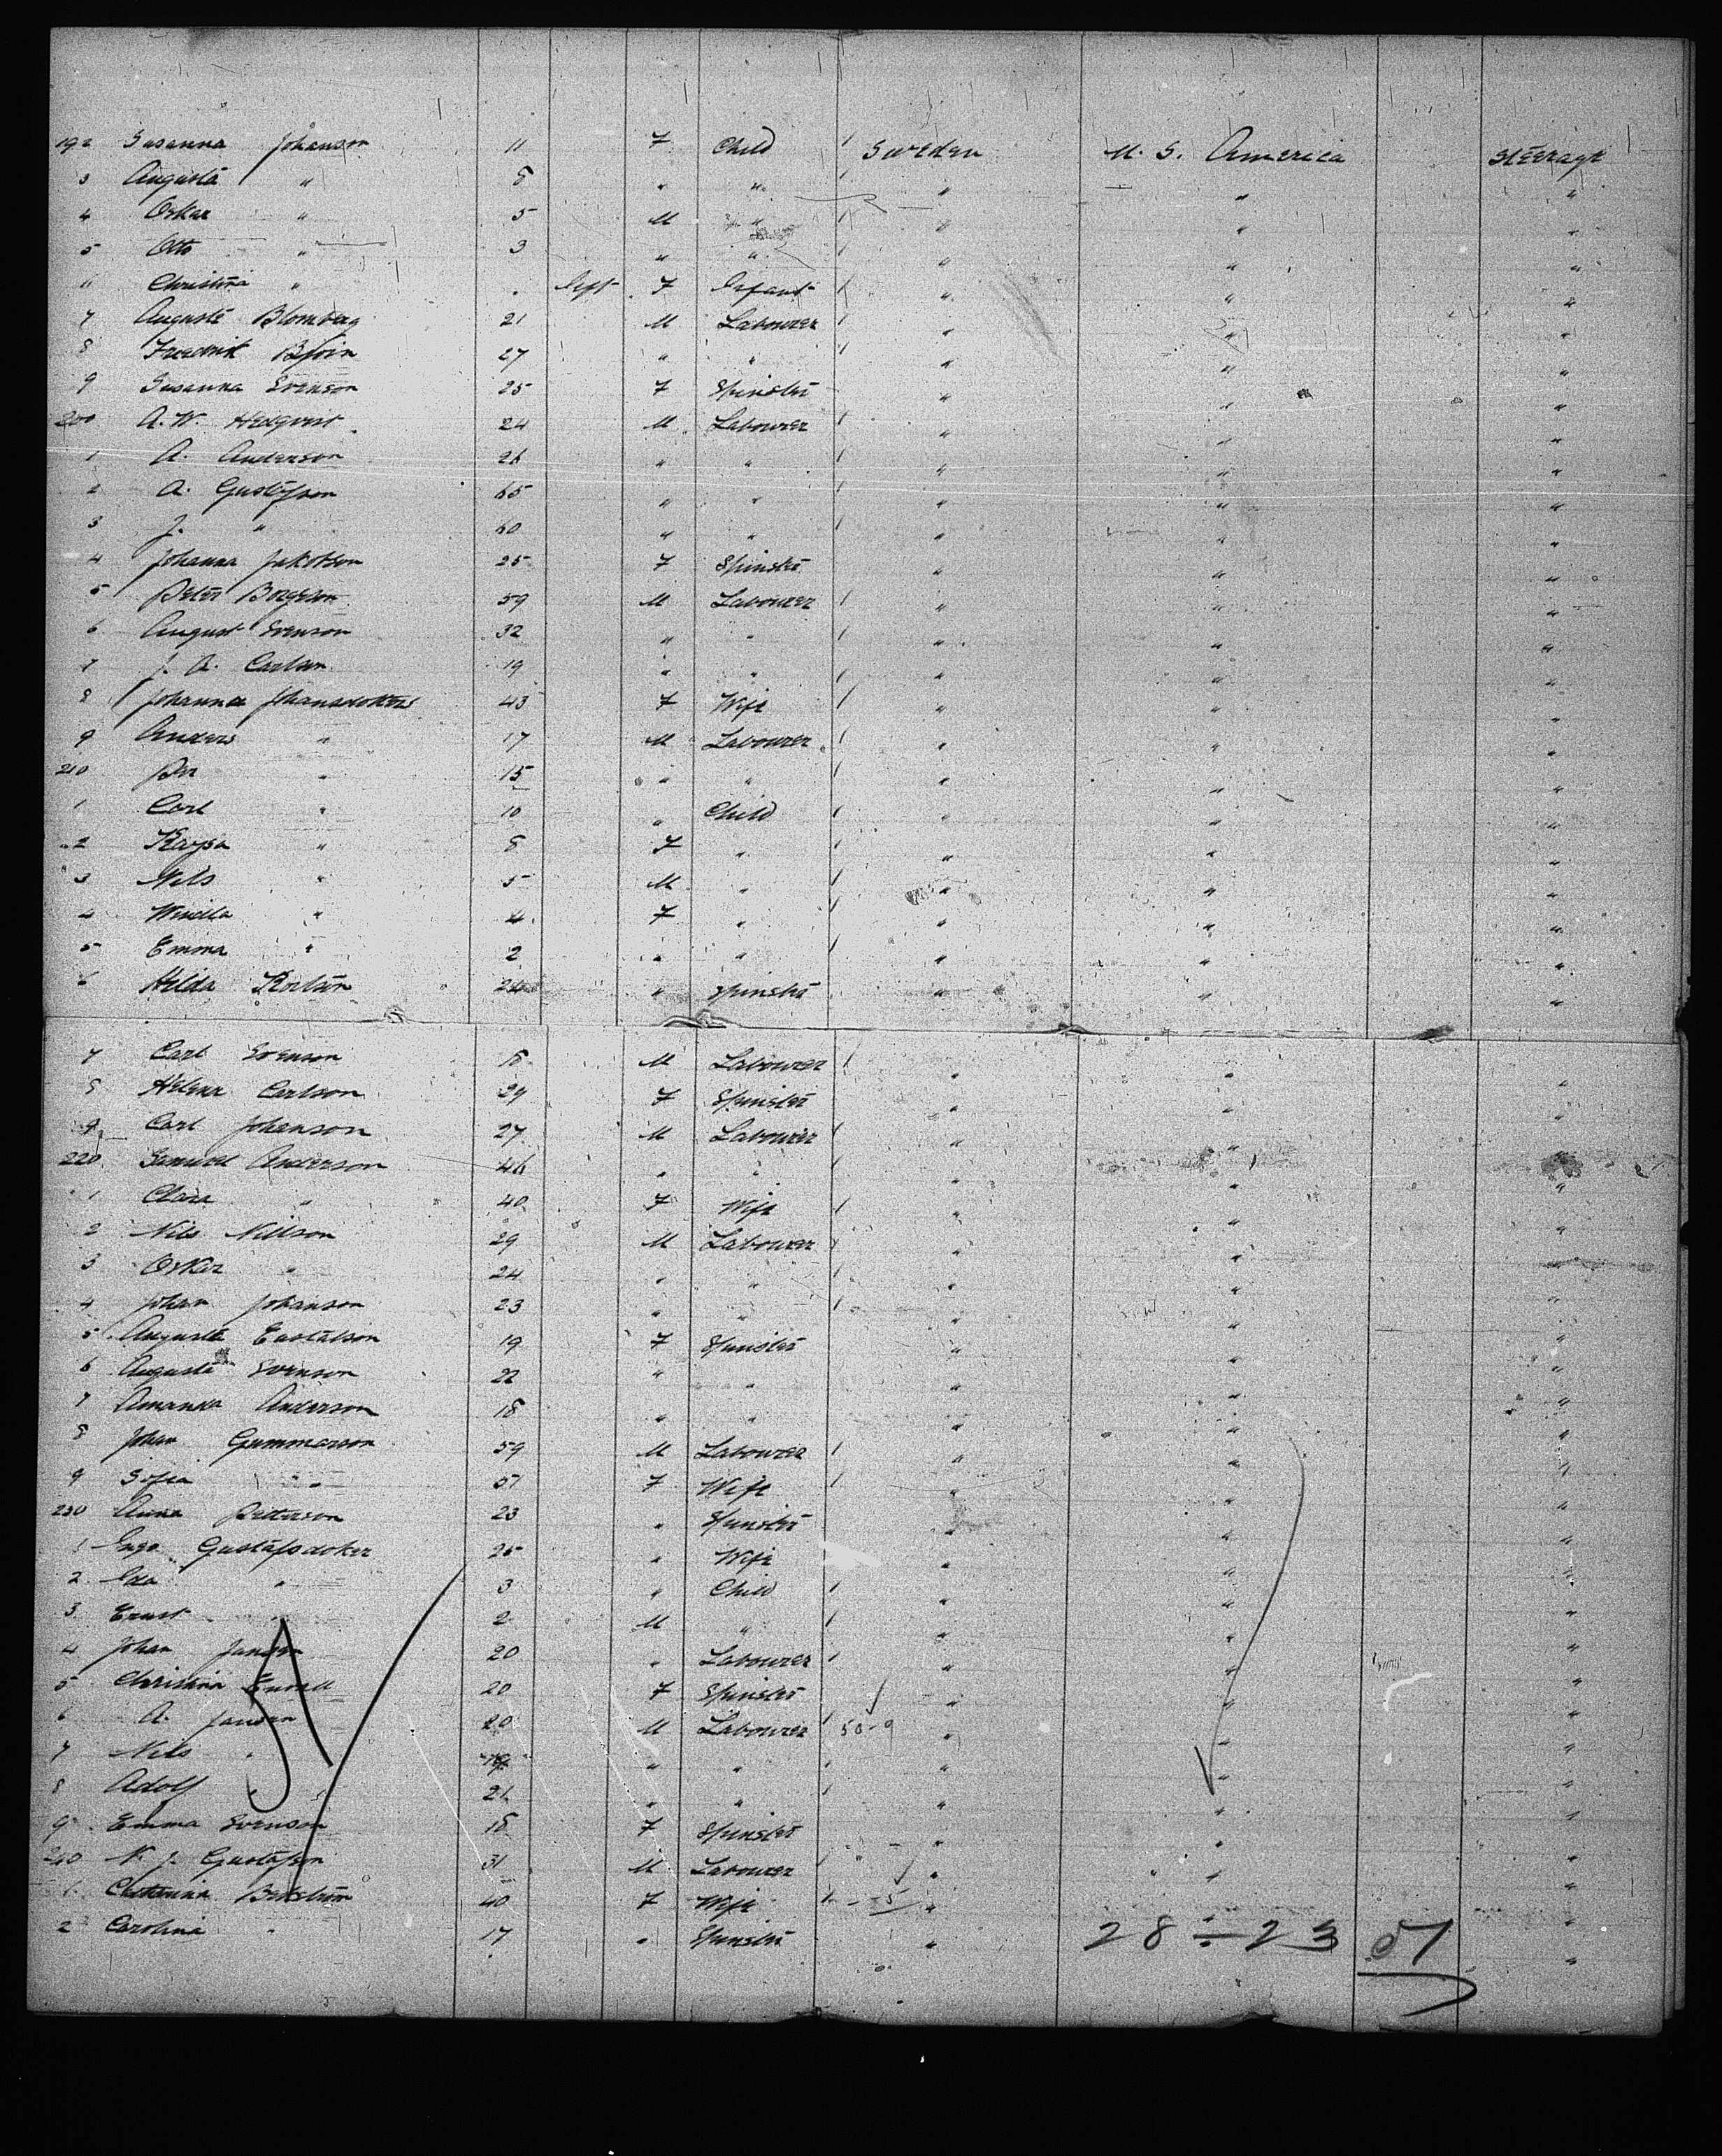 192 Susanna Johanson 11 F Child 1 Sweden U. S. America Steerage
3 Augusta " 8 " " 1 " " "
4 Oskar " 5 M " 1 " " "
5 Otto " 3 " " 1 " " "
Christina " F Infant 1 " " "
7 Auguste Blomberg 21 M Labourer 1 " " "
8 Fredrik 27 " " 1 " " "
9 Susanna Svenson 25 F Spinster " " "
200 A. W. Hedqvist 24 M Labourer 1 " " "
1 A. Anderson 26 " " 1 " " "
2 A. Gustafson 65 " " 1 " " "
3 J. " 60 " " 1 " " "
4 Johanna Jakobson 25 F Spinster " " "
5 Peter Borgeson 59 M Labourer 1 " " "
6 August Svenson 32 " " 1 " " "
7 J. A. Carlson 19 " " 1 " " "
8 Johanna 43 F Wife 1 " " "
9 Anders " 17 M Labourer 1 " " "
210 Per " 15 " " 1 " " "
1 Carl " 10 " Child 1 " " "
2 Kaysa " 8 F " 1 " " "
3 Nils " 5 M " 1 " " "
4 " 4 F " 1 " " "
5 Emma " 2 " " 1 " " "
6 Hilda 24 " Spinster " " "
7 Carl Svenson 18 M Labourer 1 " " "
8 Helena Carlson 29 F Spinster " " "
9 Carl Johanson 27 M Labourer 1 " " "
220 Samuel Anderson 46 " " 1 " " "
1 Clara " 40 F Wife 1 " " "
2 Nils Nillson 29 M Labourer 1 " " "
3 Oskar " 24 " " 1 " " "
4 Johan Johanson 23 " " 1 " " "
5 Augusta 19 F Spinster " " "
6 Augusta Svenson 22 " " " " "
7 Amanda Anderson 18 " " " " "
8 Johan Gummarson 59 M Labourer 1 " " "
9 Sofia " 57 F Wife 1 " " "
230 Anna Petterson 23 " Spinster " " "
1 Gustafsdoter 25 " Wife " " "
2 Ida " 3 " Child 1 " " "
3 Ernst " 2 M " 1 " " "
4 Johan 20 " Labourer 1 " " "
5 Christina 20 F Spinster " " "
6 A. Janson 20 M Labourer 1 " " "
7 Nils " " " " " "
8 Adolf " 21 " " 1 " " "
9 Emma Svenson 18 F Spinster " " "
240 N. J. Gustafson 31 M Labourer 1 " " "
1 Catharina 40 F Wife 1 " " "
2 Carolina " 17 " Spinster " 28 - 23 "